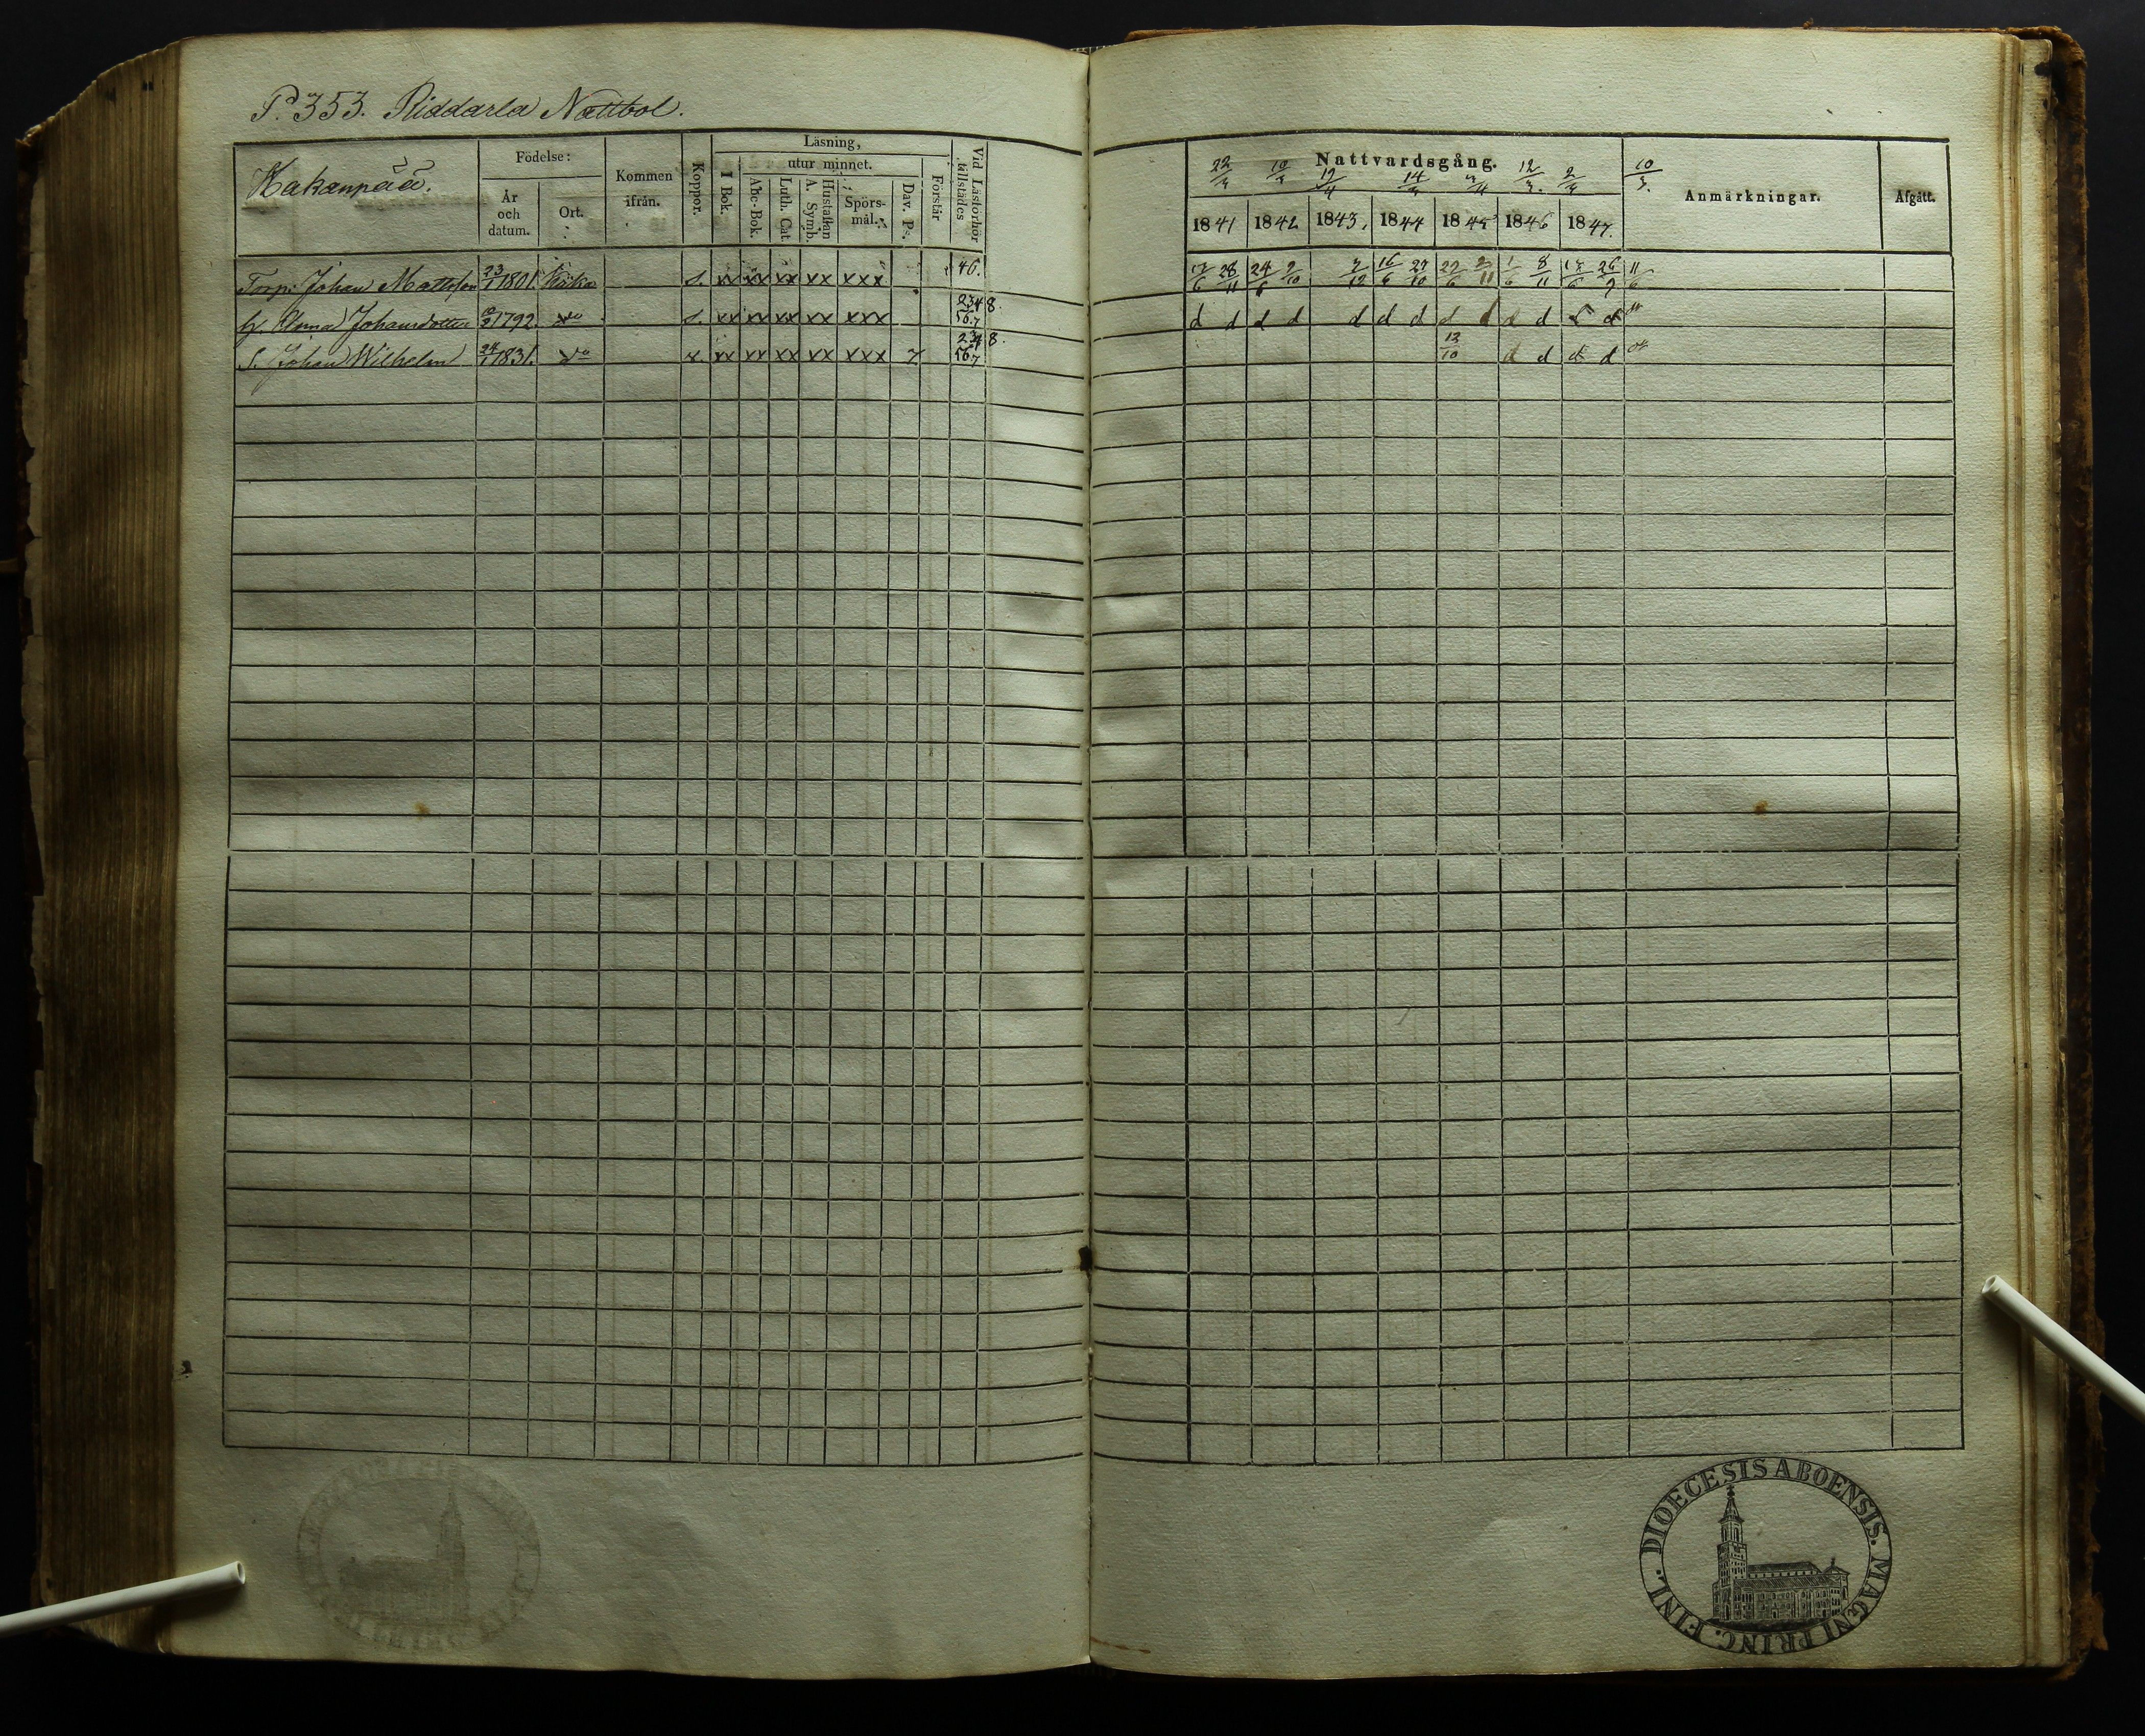 P. 353. Riddarla Nattbol.
Hakanpää.
Födelse:
År och datum.
Ort.
Kommen ifrån.
Koppor.
Läsning,
utur minnet.
I Bok.
Abc-Bok.
Luth. Cat.
Hustaflan A. Symb.
Spörs-mål.
Dav. Ps.
Förstår.
Vid Läsförhör tillstädes
Torp: Johan Mattsson 23/1 1801. s. xx xx xx xx xxx 46.
h. Anna Johansdotter 1792. do s. xx xx xx xx xxx 2348. 567
S. Johan Wilhelm 24/1 1831. do xx xx xx xx xxx 7 2348. 567
Nattvardsgång.
12/3. 10/3.
1841 1842 1843. 1844 1845 1846 1847.
Anmärkningar.
Afgått.
28/11 24/6 2/10 16/6 22/6 8/11
d d d d d d d d d d d d
12/10 d d d d
DIOECESIS ABOENSIS. MAGNI PRINC. FINL.